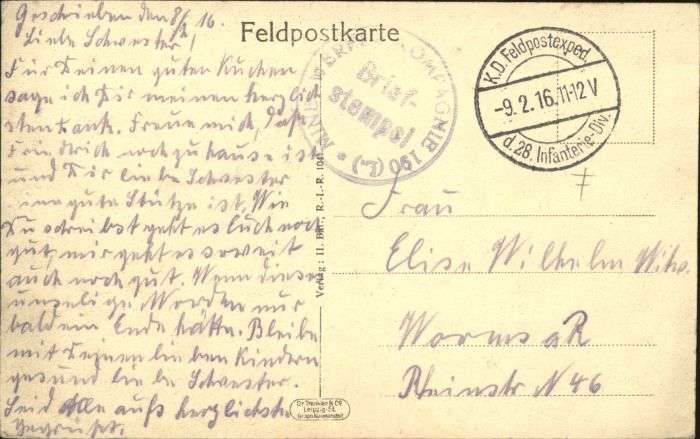 Geschrieben den 8/2 16.
Liebe Schwester,
Für Deinen guten Kuchen
sage ich Dir meinen herzlich
sten Dank. Freue mich, daß
Friedrich noch zu hause ist
und Dir liebe Schwester
inne gute Stütze ist. Wie
Du schreibst geht es Euch noch
gut, mir geht es soweit
auch noch gut. Wenn dieses
unselige Morden nur
bald ein Ende hätte. Bleibe
mit Deinen lieben Kindern
gesund liebe Schwester.
Seid Alle aufs herzlichste
Gegrüßt.
Feldpostkarte
MINENWERFER KOMPAGNIE 190 (L.)
Brief-
stempel
K.D. Feldpostexped.
-9.2.16.11-12V
d. 28. Infanterie-Div.
Verlag: H. R.-I.-R.
Frau
Elise Wilhelm Witw.
Worms a R
Rheinstr N 46
Dr. Trenkler & Co
Leipzig-St.